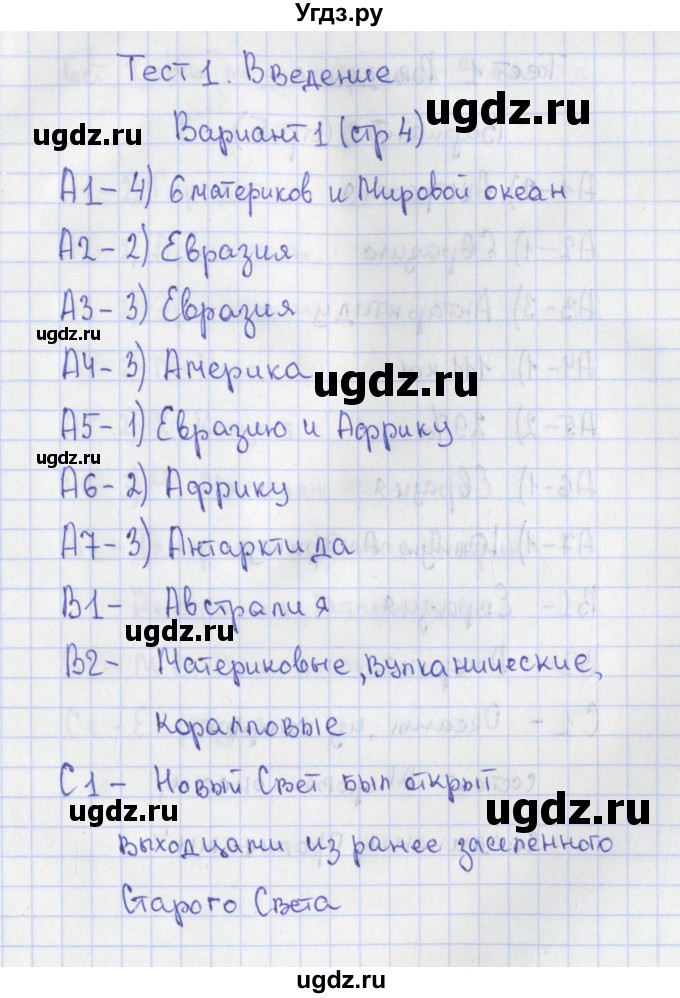 Угдз.ру
Тест 1. Введение
ugdz.ru
ugdz.ru
Вариант 1 (стр 4)
А1- 4) 6 материков и Мировой океан
А2- 2) Евразия
А3- 3) Евразия
ugdz.ru
А4- 3) Америка
ugdz.ru
А5- 1) Евразию и Африку
ugdz.ru
А6- 2) Африку
А7- 3) Антарктида
В1- Австралия
ugdz.ru
В2- Материковые, вулканические,
коралловые
С1- Новый Свет был открыт
ugdz.ru
ugdz.ru
выходцами из ранее заселенного
Старого Света
ugdz.ru